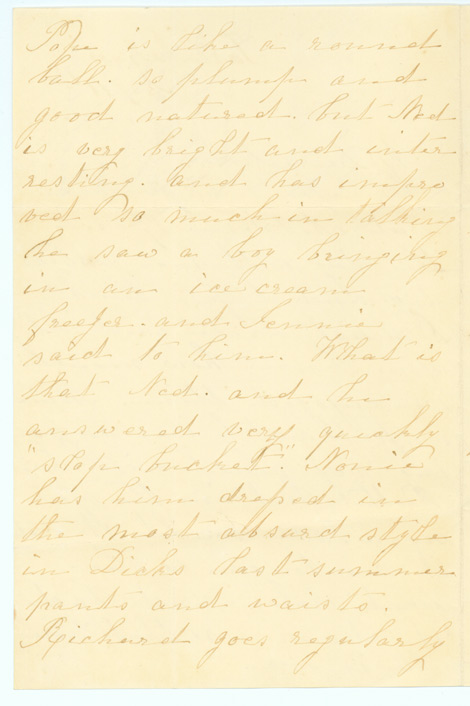 Pope is like a round
ball. so plump and
good natured. but Ned
is very bright and inter
resting. and has impro
ved so much in talking
he saw a boy bringing
in an ice cream
freezer. and Jennie
said to him. What is
that Ned. and he
answered very quickly
"slop bucket." Nonie
has him dressed in
the most absurd style
in Dicks last summer
pants and waists.
Richard goes regularly